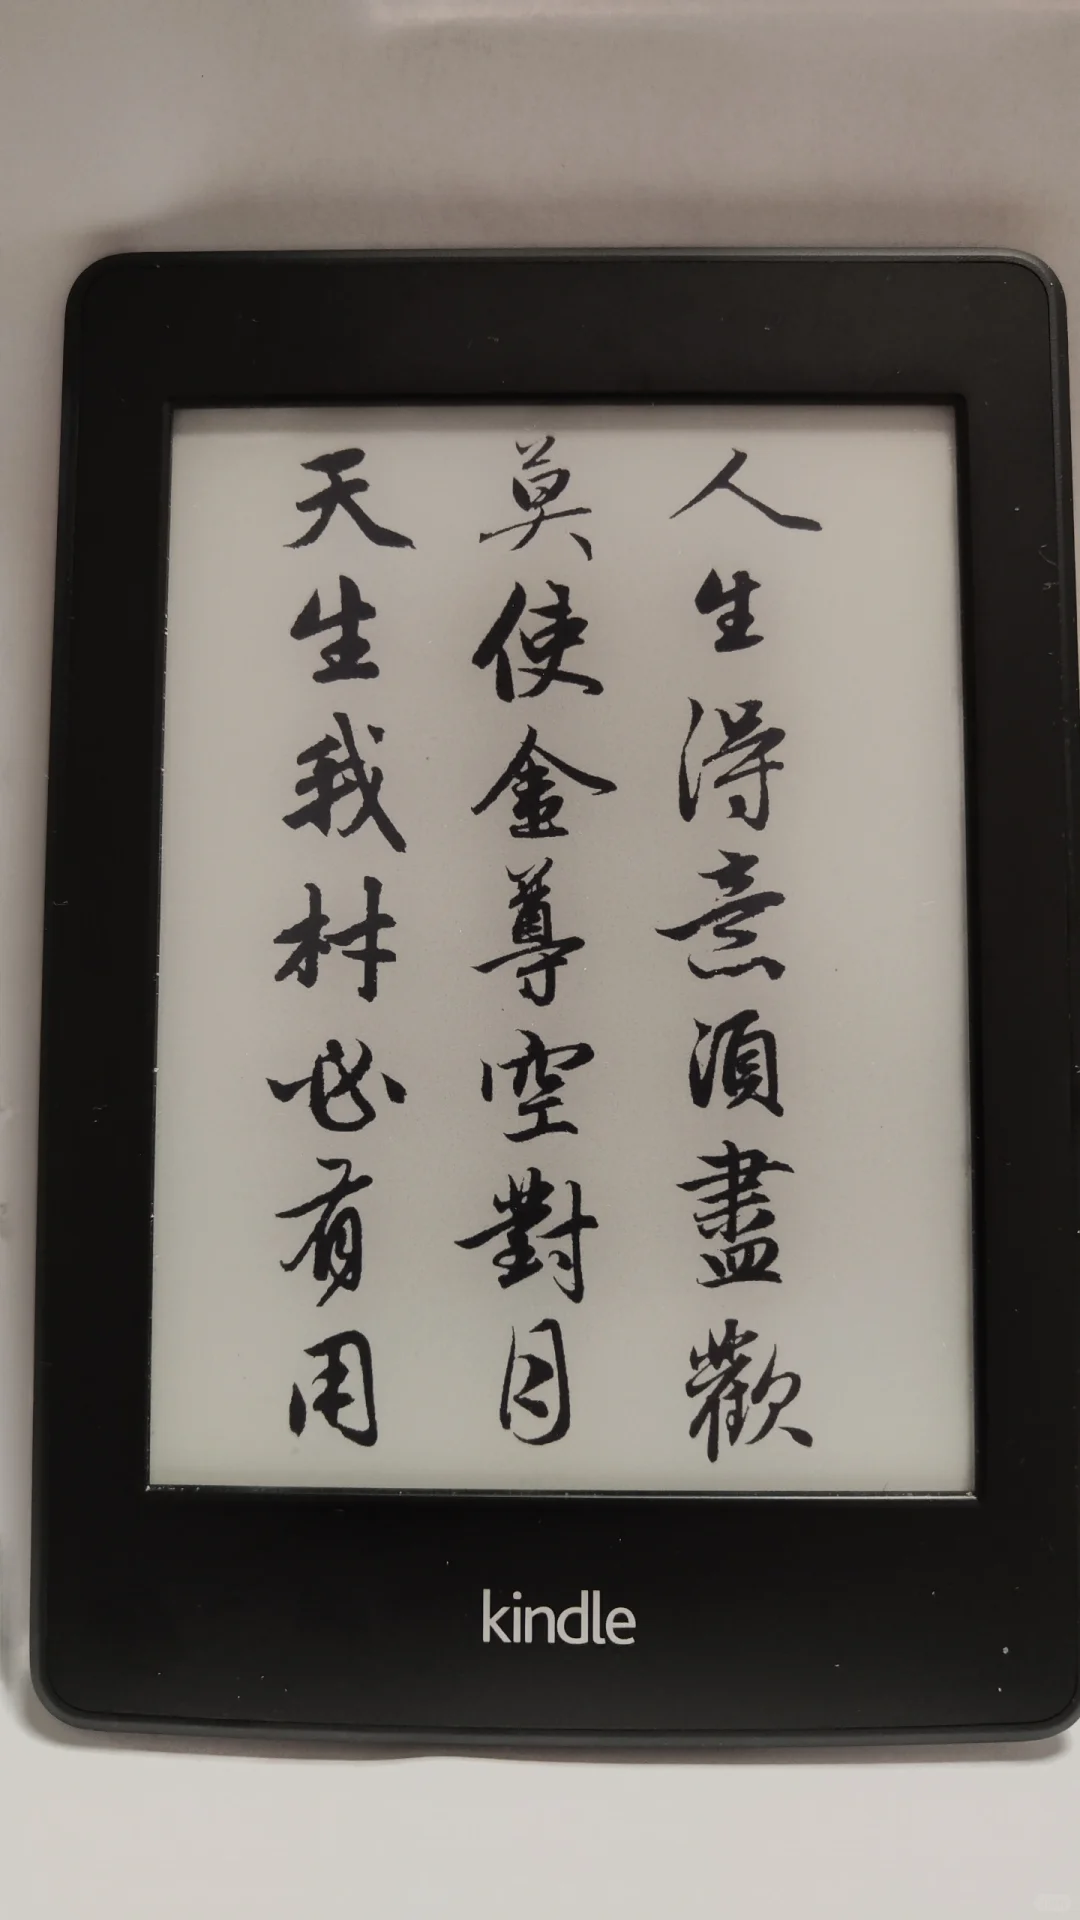 人生得意須盡歡
莫使金尊空對月
天生我材必有用
kindle